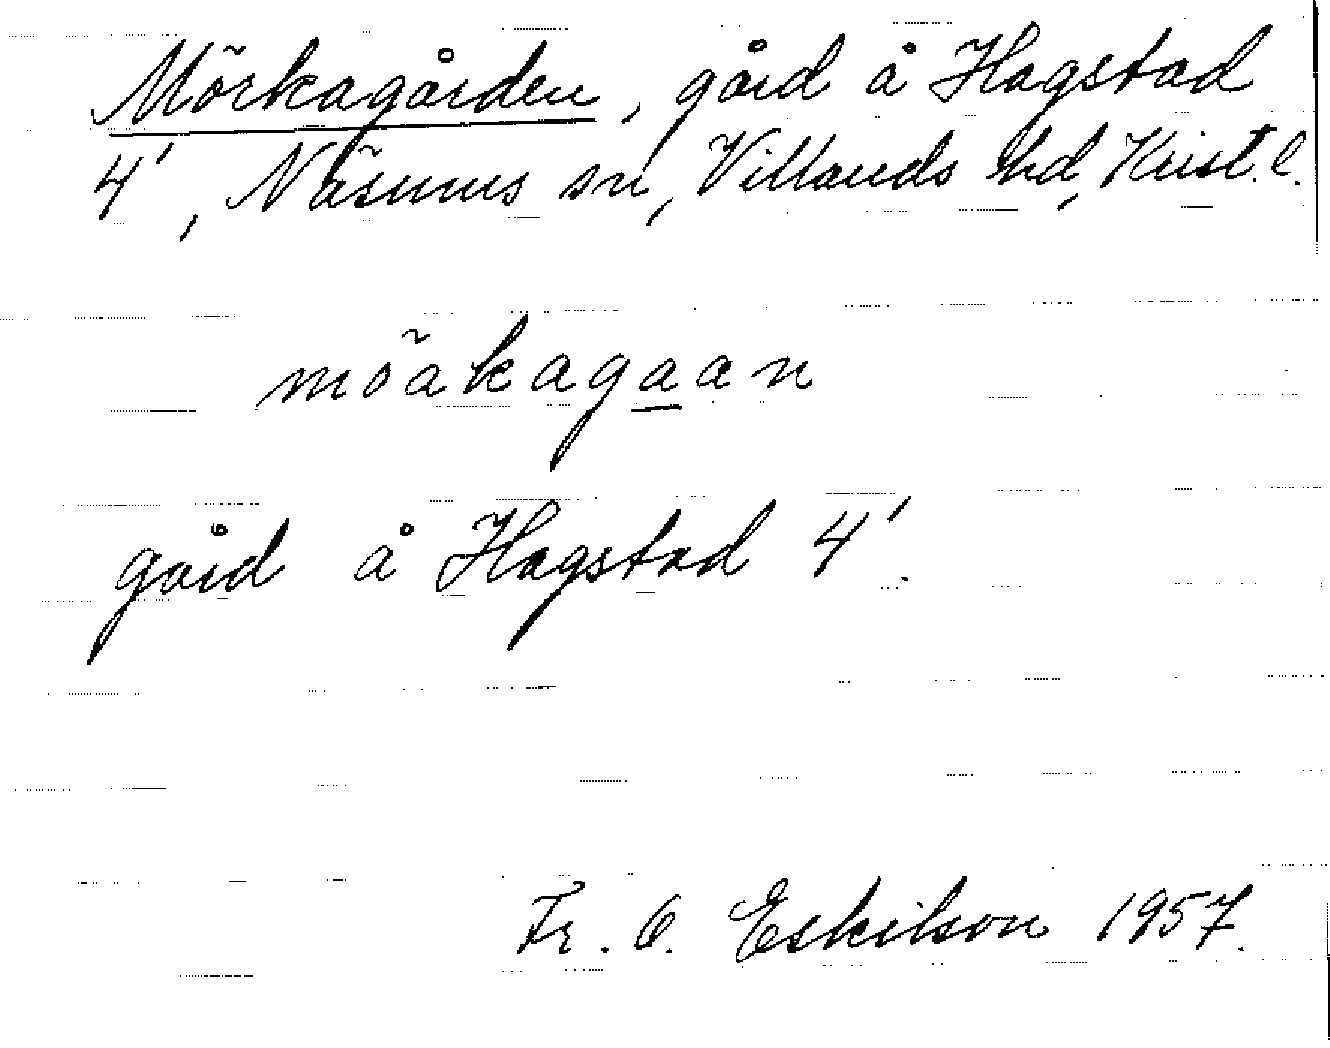 Mörkagården, gård å Hagstad
4', Näsums sn, Villands hd, Krist. l.
möäkagaan
gård å Hagstad 4'.
Fr. O. Eskilson 1957.